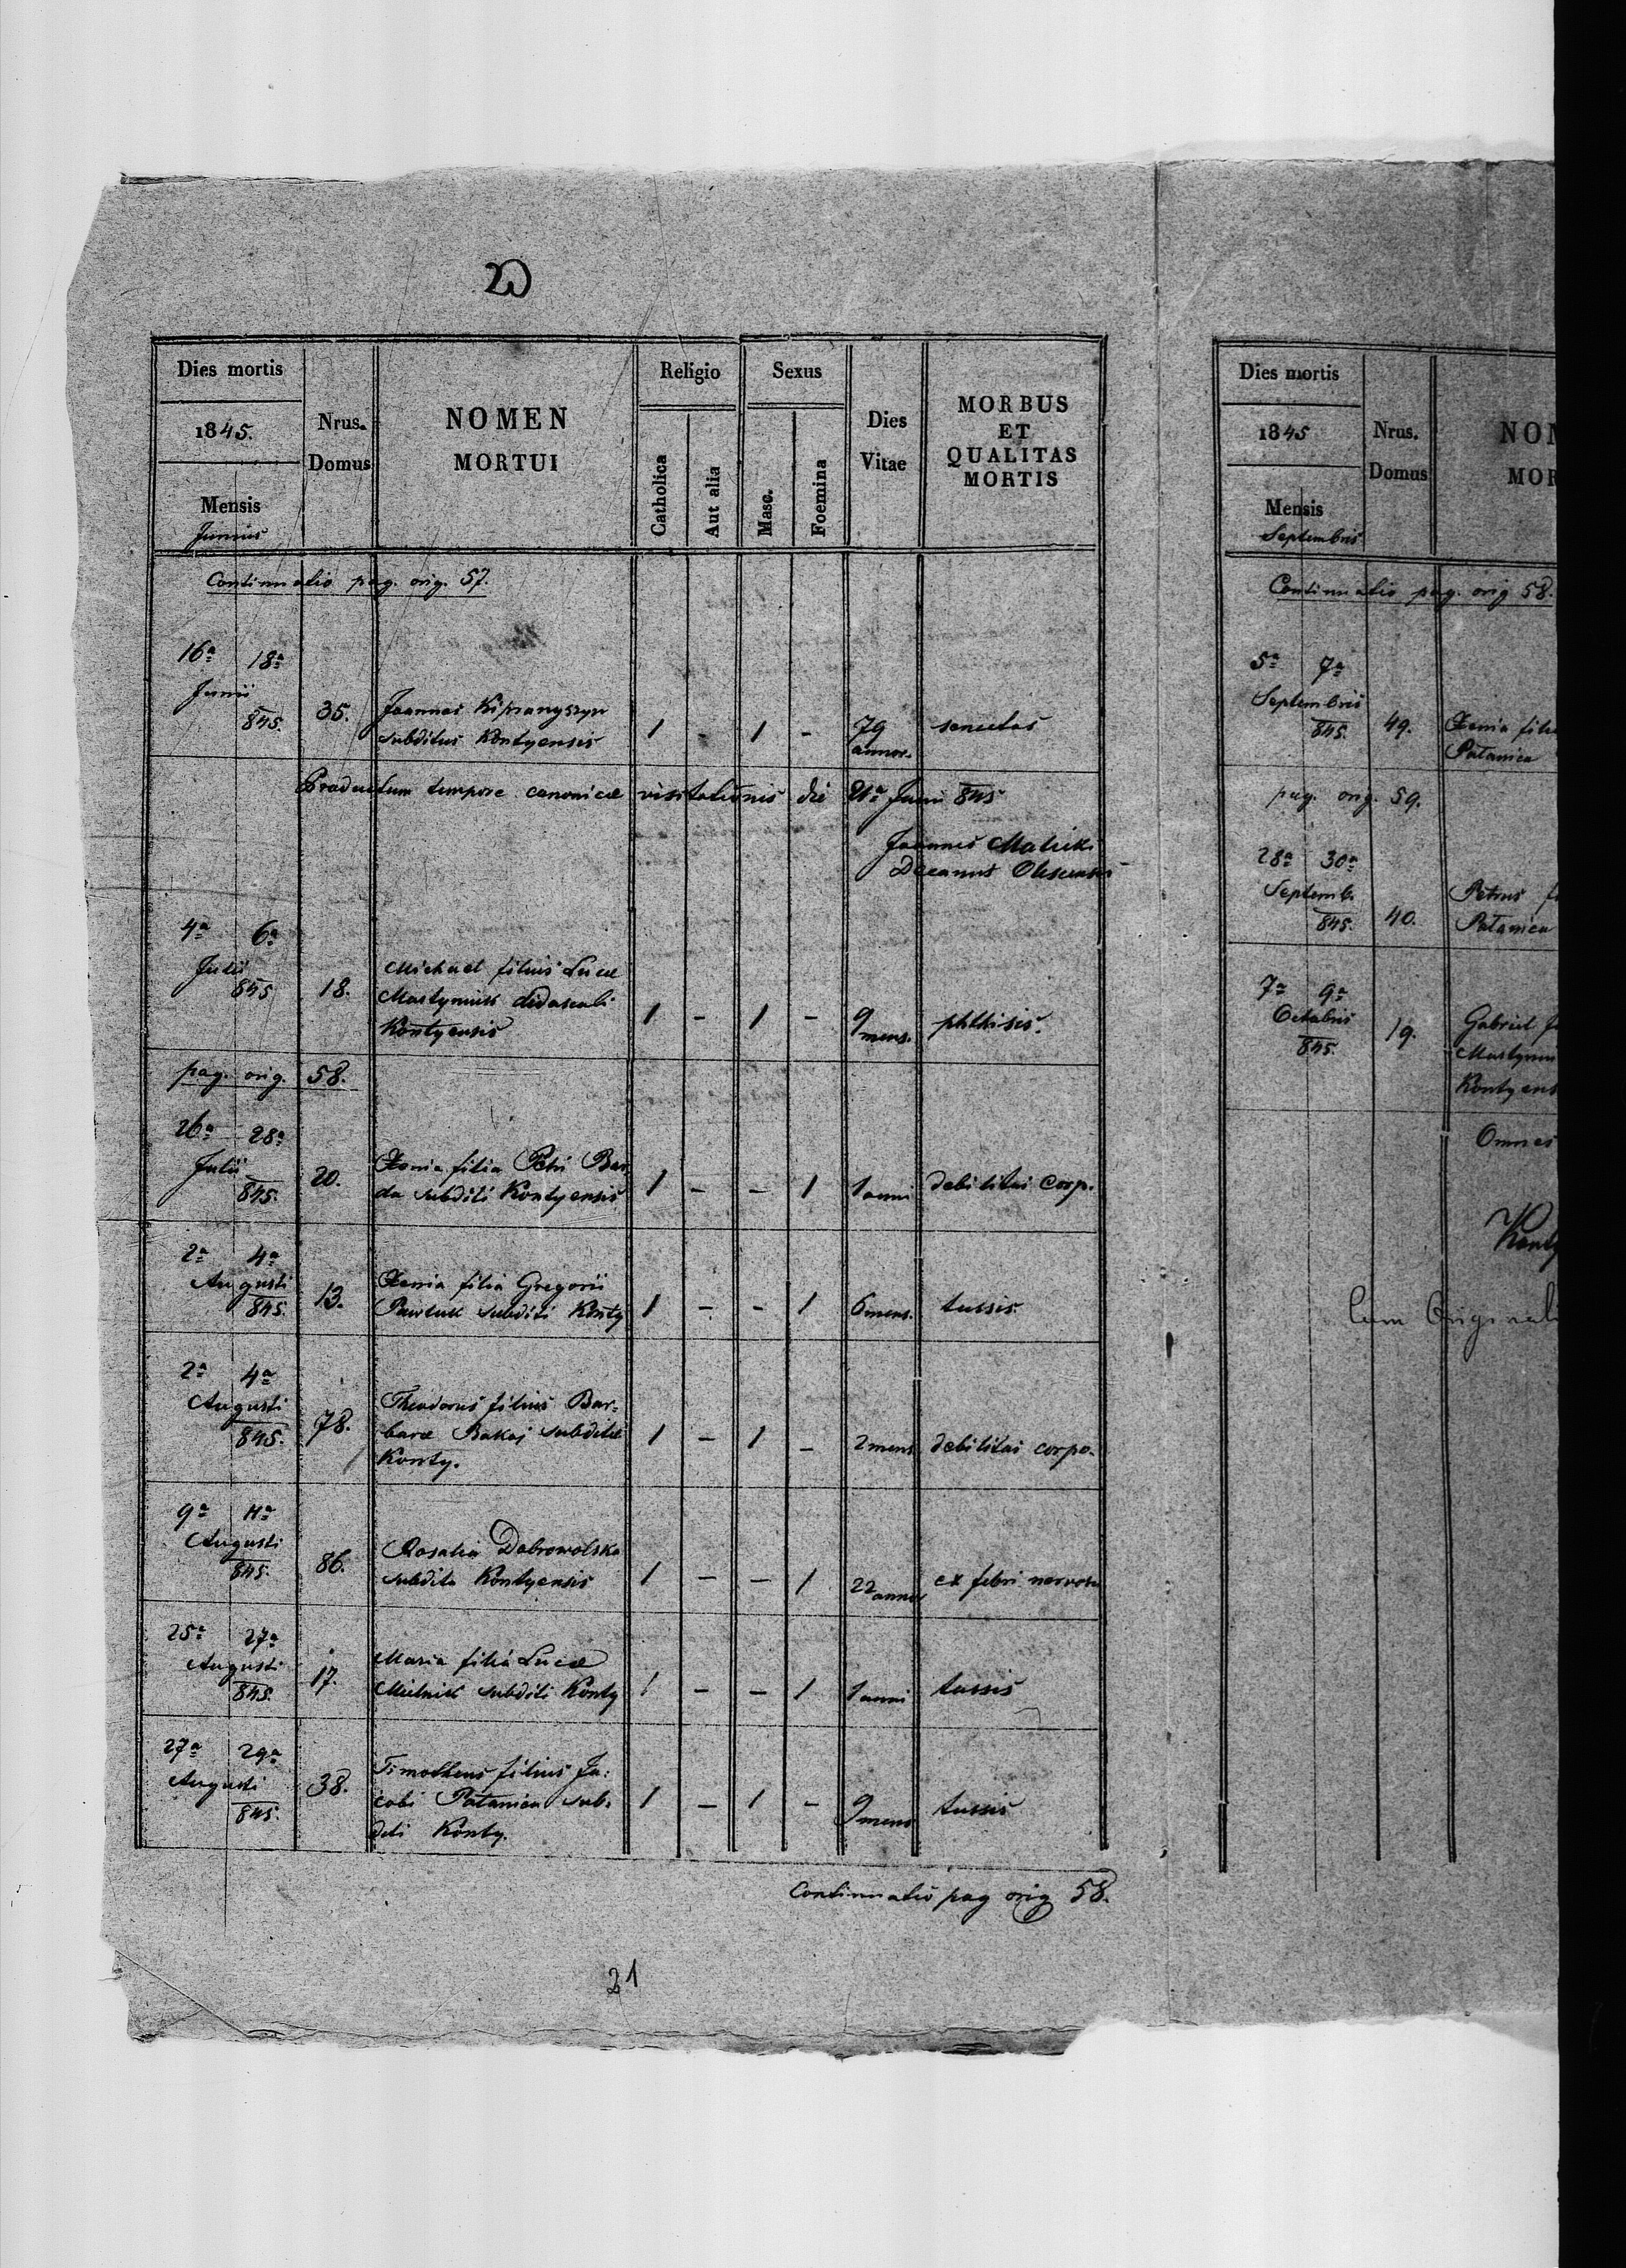 Dies mortis
1845.
Mensis
Junius
Nrus.
Domus
NOMEN
MORTUI
Religio
Catholica
Aut alia
Sexus
Masc.
Foemina
Dies
Vitae
MORBUS
ET
QUALITAS
MORTIS
Continuatio pag. orig. 57.
16ª 18ª
Junii
845. 35. Joannes Kipranyszyn
subditus Kontyensis 1 - 1 - 79 annor. senectas
Productum tempore canonicae visitationis die 21ª Junii 845
Joannes
Decanus
4ª 6ª
Julii
845 18. Michael filius Lucae
Martyniuk didascali
Kontyensis 1 - 1 - 9 mens. phthisis.
pag. orig. 58.
26ª 28ª
Julii
845. 20. Xenia filia Petri Bar
da subditi Kontyensis 1 - - 1 1 anni debilitas corp.
2ª 4ª
Augusti
845. 13. Xenia filia Gregorii
Pawluk subditi Konty 1 - - 1 6 mens. tussis
2ª 4ª
Augusti
845. 78. Theodorus filius Bar=
barae Bakaj subditae
Konty. 1 - 1 - 2 mens debilitas corpo.
9ª 11ª
Augusti
845. 86. Rosalia Dobrowolska
subdita Kontyensis 1 - - 1 22 annor ex febri nervosa
25ª 27ª
Augusti
845. 17. Maria filia Lucae
Mielnik subditi Konty 1 - - 1 1 anni tussis
27ª 29ª
Augusti
845. 38. Timotheus filius Ja:
cobi Patanica sub.
diti Konty. 1 - 1 - 9 mens tussis
Continuatio pag orig 58.
21
Dies mortis
1845
Mensis
Septembris
Nrus.
Domus
NOM
MOR
Continuatio pag. orig 58.
5ª 7ª
Septembris
845. 49. Xenia filia
Patanica
pag. orig. 59.
28ª 30ª
Septemb.
845. 40. Petrus f
Patanica
7ª 9ª
Octobris
845. 19. Gabriel f
Martyniu
Kontyens
Omnes
Konty
Cum Originali